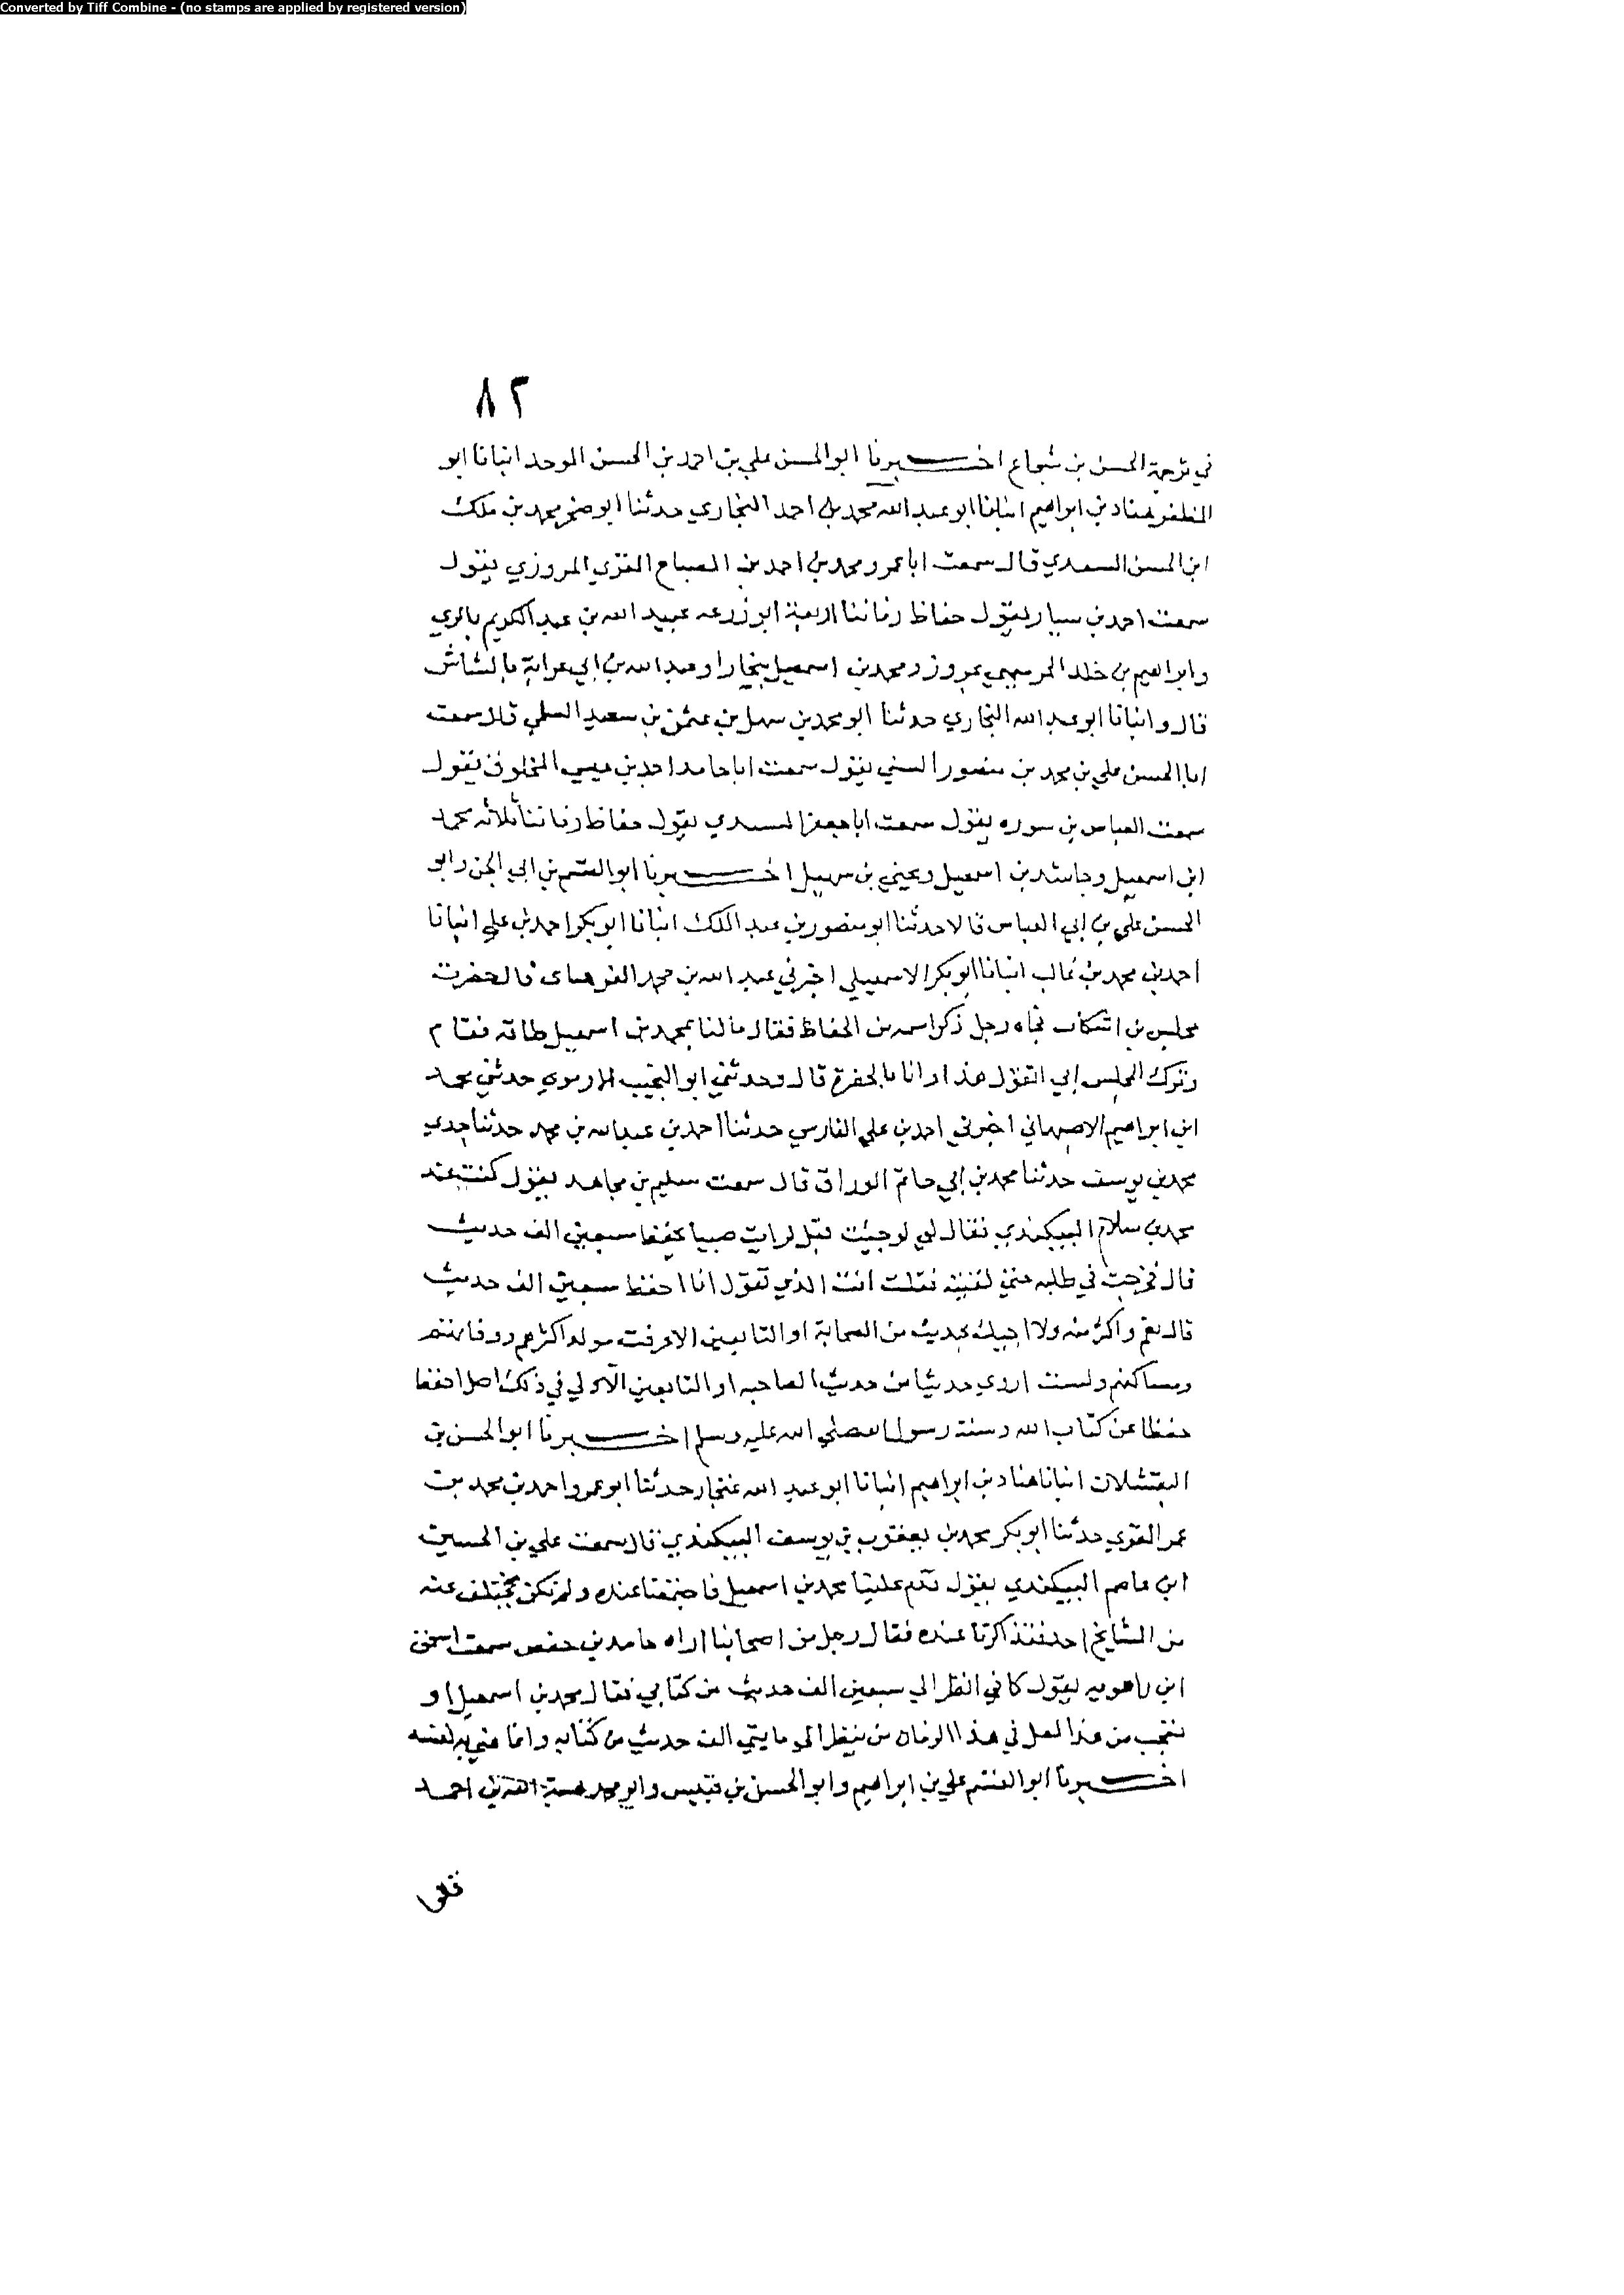 Converted by Tiff Combine - (no stamps are applied by registered version)
٨٢
في ترجمة الحسن بن شجاع اخبرنا ابو الحسن علي بن احمد بن الحسن الموحد انبانا ابو
المظفر هناد بن ابراهيم انبانا ابو عبد الله محمد بن احمد البخاري حدثنا ابو صخر محمد بن ملك
ابن الحسن السعدي قال سمعت ابا عمرو محمد بن احمد بن الصباح المقري المروزي يقول
سمعت احمد بن سيار يقول حفاظ زماننا اربعة ابو زرعه عبيد الله بن عبد الكريم بالري
وابراهيم بن خلد بمروز ومحمد بن اسمعيل ببخارا وعبد الله بن ابي عرابة بالشاش
قال وانبانا ابو عبد الله البخاري حدثنا ابو محمد بن سهل بن عثمن بن سعيد السلمي قال سمعت
ابا الحسن علي بن محمد بن منصور يقول سمعت ابا حامد احمد بن عيسي يقول
سمعت العباس بن سوره يقول سمعت ابا جعفر المسندي يقول حفاظ زماننا ثلاثه محمد
ابن اسمعيل وحاشد بن اسمعيل ويحيي بن سهيل اخبرنا ابو القسم بن ابي الجن وابو
الحسن علي بن ابي العباس قالا حدثنا ابو منصور بن عبد الملك انبانا ابو بكر احمد بن علي انبانا
احمد بن محمد بن غالب انبانا ابو بكر الاسمعيلي اخبرني عبد الله بن محمد قال حضرت
مجلس بن اشكاب فجاه رجل ذكر اسمه من الحفاظ فقال مالنا بمحمد بن اسمعيل طاقه فقام
وترك المجلس اي اتقول هذا وانا بالحضرة قال وحدثني ابو النجيب الارموي حدثني محمد
ابن ابراهيم الاصبهاني اخبرني احمد بن علي الفارسي حدثنا احمد بن عبد الله بن محمد حدثنا جدي
محمد بن يوسف حدثنا محمد بن ابي حاتم الوراق قال سمعت سليم بن مجاهد يقول كنت عند
محمد بن سلام البيكندي فقال لي لو جيئت قبل لرايت صبيا يحفظ سبعين الف حديث
قال فخرجت في طلبه حتي لقيته فقلت انت الذي تقول انا احفظ سبعين الف حديث
قال نعم واكثر منه ولا اجيبك بحديث من الصحابة او التابعين الا عرفت مولد اكثرهم ووفاتهم
ومساكنهم ولست اروي حديثا من حديث الصاحبه او التابعين الا ولي في ذلك اصل احفظ
حفظا عن كتاب الله وسنة رسول الله صلي الله عليه وسلم اخبرنا ابو الحسن بن
البقشلان انبانا هناد بن ابراهيم انبانا ابو عبد الله غنجار حدثنا ابو عمرو احمد بن محمد بن
عمر المقري حدثنا ابو بكر محمد بن يعقوب بن يوسف البيكندي قال سمعت علي بن الحسين
ابن عاصم البيكندي يقول قدم علينا محمد بن اسمعيل فاجتمعنا عنده ولم يكن يختلف عنه
من المشايخ احد فتذاكرنا عنده فقال رجل من اصحابنا اراه حامد بن حفص سمعت اسحق
ابن راهويه يقول كاني انظر الي سبعين الف حديث من كتابي فقال محمد بن اسمعيل او
تعجب من هذا لعل في هذا الزمان من ينظر الي مايتي الف حديث من كتابه وانما عني به نفسه
اخبرنا ابو القسم علي بن ابراهيم وابو الحسن بن قبيس وابو محمد هبة الله بن احمد